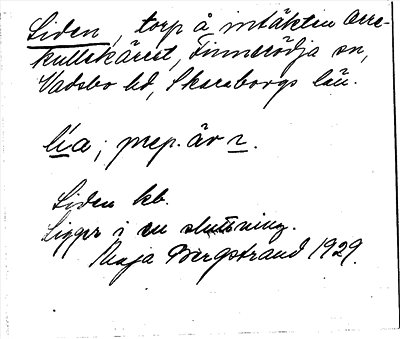 Liden, torp å intäkten Arre-
kullekärret, Finnerödja sn,
Vadsbo hd, Skaraborgs län.
lia; prep. är 2.
Liden kb.
Ligger i en sluttning.
Maja Bergstrand 1929.